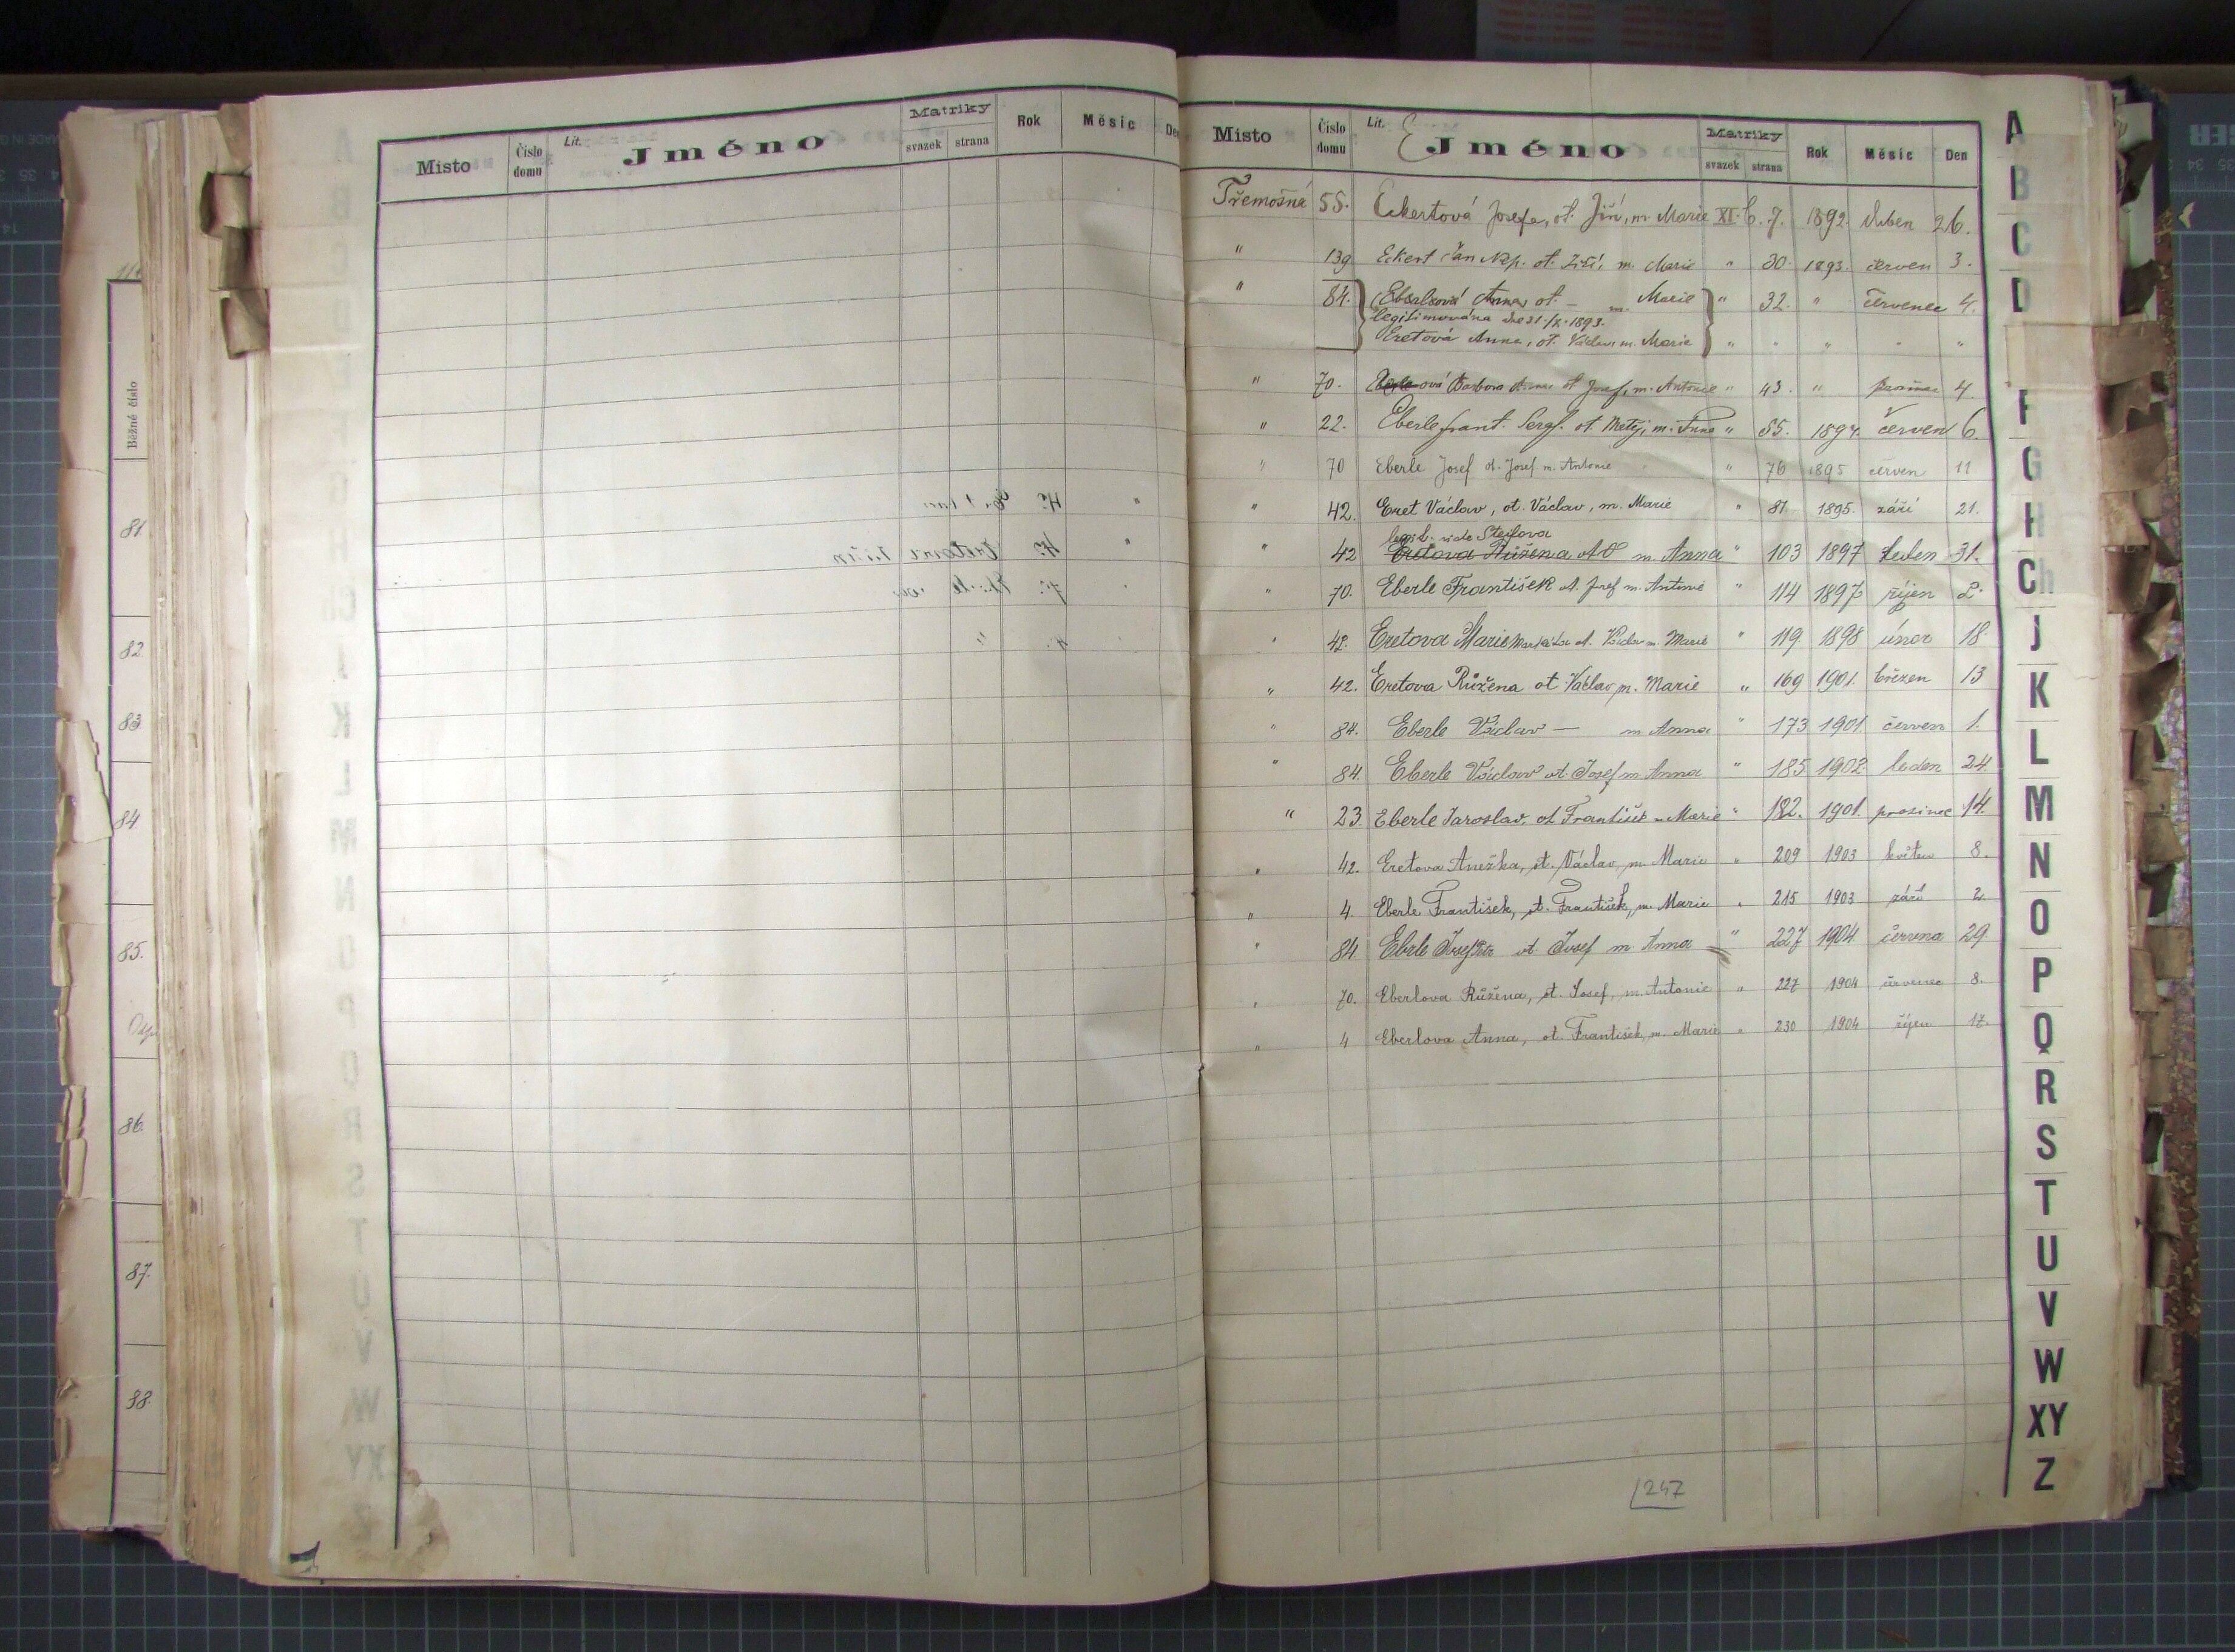 Běžné číslo
81
82.
83.
84
85.
86.
87.
88.
Misto Číslo domu Lit. Jméno Matriky svazek strana Rok Měsíc Den
Misto Číslo domu Lit. E Jméno Matriky svazek strana Rok Měsíc Den
Třemošná 55. Eckertová Josefa, ot. Jiří, m. Marie XI. C. 7. 1892. duben 26.
" 139 Eckert Jan Nep. ot. Jiří, m. Marie " 30. 1893. červen 3.
" 84. Eberlová Anna ot. — m. Marie " 32. " červenec 4.
legitimována dne 31./X. 1893.
Eretová Anna, ot. Václav m. Marie " " " " "
" 70. ová Barbora Anna ot Josef, m. Antonie " 43. " prosinec 4.
" 22. Eberle Frant. Seraf. ot. Matěj, m. " 55. 1894. červen 6.
" 70 Eberle Josef ot. Josef m. Antonie " 76 1895 červen 11
" 42. Eret Václav, ot. Václav, m. Marie " 81. 1895. září 21.
legit. vide Stejlova
" 42 Eretova Růžena ot O m. Anna " 103 1897 leden 31.
" 70. Eberle František ot. Josef m. Antonie " 114 1897 říjen 2.
" 42. Eretova Marie Markéta ot. Václav m. Marie " 119 1898 únor 18
" 42. Eretova Růžena ot Václav m. Marie " 169 1901. březen 13
" 84. Eberle Václav — m Anna " 173 1901 červen 1.
" 84. Eberle Václav ot. Josef m Anna " 185 1902. leden 24.
" 23. Eberle Jaroslav, ot František m Marie " 182. 1901. prosinec 14.
" 42. Eretova Anežka, ot. Václav, m. Marie " 209 1903 květen 8.
" 4. Eberle František, ot. František, m. Marie " 215 1903 září 2.
" 84. Eberle Josef Petr ot Josef m Anna " 227 1904 června 29
" 70. Eberlova Růžena, ot. Josef, m. Antonie " 227 1904 červenec 8.
" 4 Eberlova Anna, ot. František, m. Marie " 230 1904 říjen 17.
247
A
B
C
D
F
G
H
Ch
J
K
L
M
N
O
P
Q
R
S
T
U
V
W
XY
Z